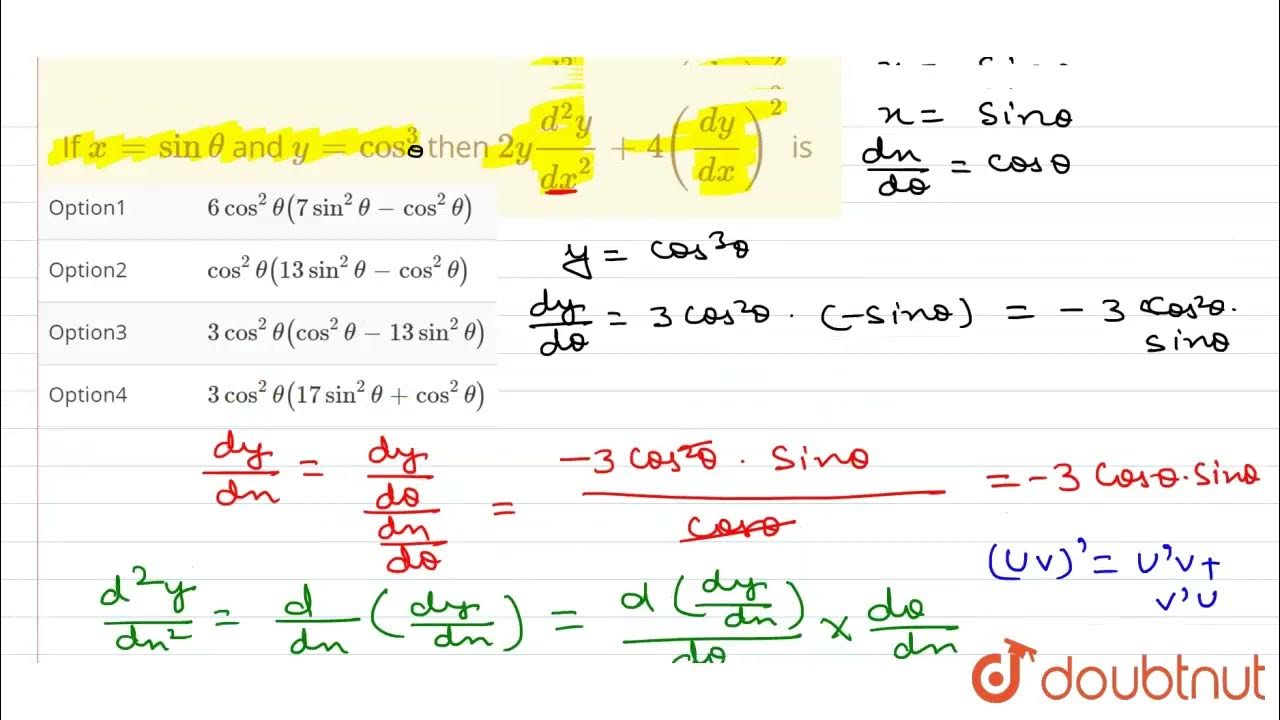 x = sin θ
If x = sin θ and y = cos³θ then 2y d²y/dx² + 4(dy/dx)² is
dx/dθ = cos θ
Option1 6 cos² θ(7 sin² θ − cos² θ)
Option2 cos² θ(13 sin² θ − cos² θ)
Option3 3 cos² θ(cos² θ − 13 sin² θ)
Option4 3 cos² θ(17 sin² θ + cos² θ)
y = cos³θ
dy/dθ = 3 cos²θ · (−sin θ) = − 3 cos²θ · sin θ
dy/dx = (dy/dθ)/(dx/dθ) = (−3 cos²θ · sin θ)/(cos θ) = −3 cos θ · sin θ
(UV)' = U'V +
V'U
d²y/dx² = d/dx (dy/dx) = d(dy/dx)/dθ × dθ/dx
doubtnut